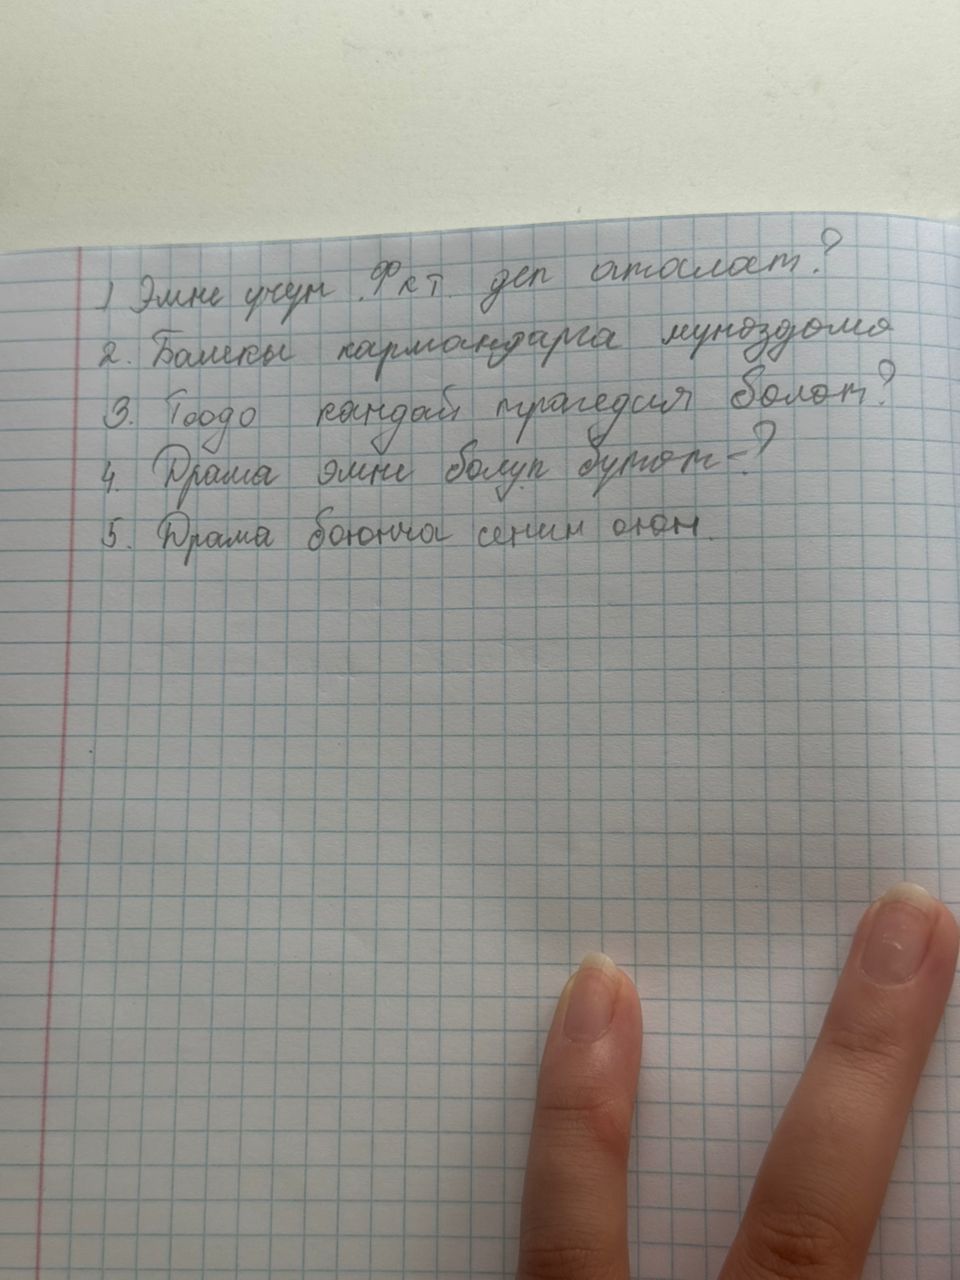 1 Эмне учун Фкт. деп аталат?
2. Башкы кармандарга муноздомо
3. Тоодо кандай трагедия болот?
4. Драма эмне болуп бутот-?
5. Драма боюнча сенин оюн.